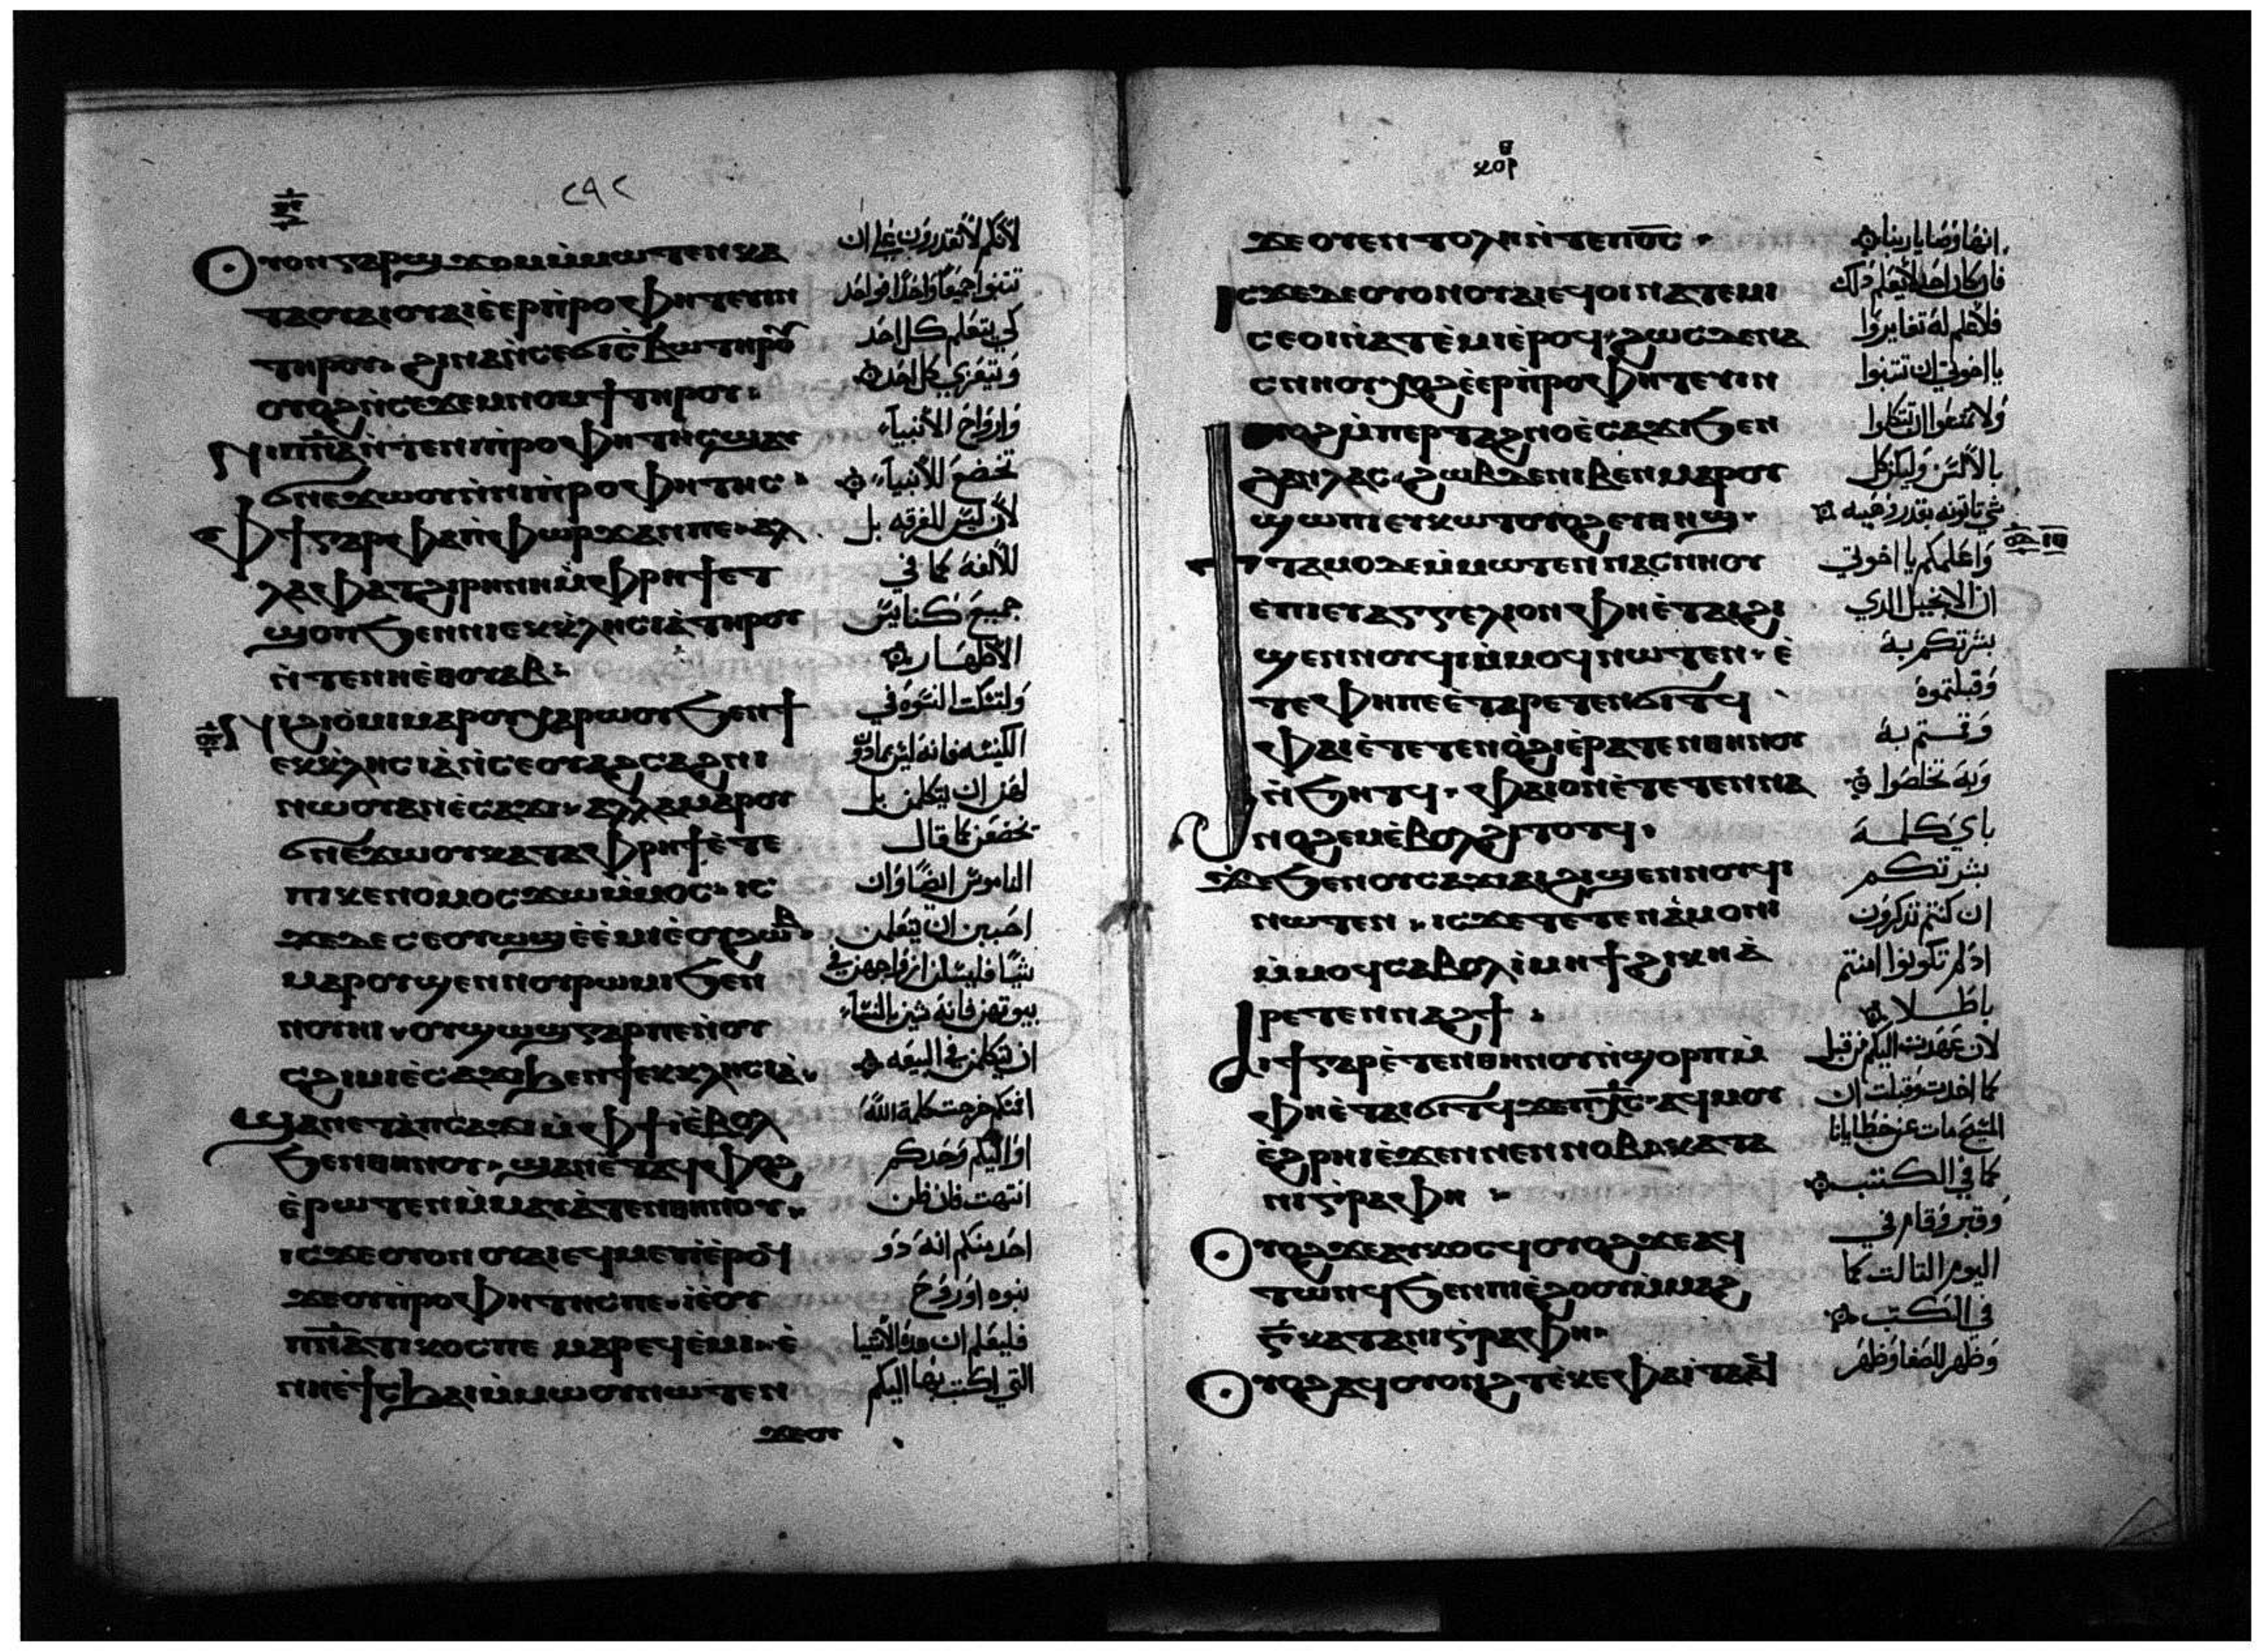 ⲟⲩⲟⲛ ϣϫⲟⲙ ⲅⲁⲣ ⲙ̀ⲙⲱⲧⲉⲛ ⲕⲁ
ⲧⲁ ⲟⲩⲁⲓ ⲟⲩⲁⲓ ⲉ̀ⲉⲣⲡ̀ⲣⲟⲫⲏⲧⲉⲩⲓⲛ
ⲧⲏⲣⲟⲩ ϩⲓⲛⲁ ⲛ̀ⲥⲉϭⲓⲥ̀ⲃⲱ ⲧⲏⲣⲟⲩ
ⲟⲩⲟϩ ⲛ̀ⲥⲉϫⲉⲙⲛⲟⲙϯ ⲧⲏⲣⲟⲩ
ⲛⲓⲡⲛ̅ⲁ̅ ⲛ̀ⲧⲉⲛⲓⲡ̀ⲣⲟⲫⲏⲧⲏⲥ ϣⲁⲩ
ϭⲛⲉϫⲱⲟⲩ ⲛ̀ⲛⲓⲡ̀ⲣⲟⲫⲏⲧⲏⲥ
ⲫϯ ⲅⲁⲣ ⲫⲁ ⲡ̀ⲫⲱⲣϫ ⲁⲛ ⲡⲉ ⲁⲗ
ⲗⲁ ⲫⲁ ⲧϩⲓⲣⲏⲛⲏ ⲙ̀ⲫⲣⲏϯ ⲉⲧ
ϣⲟⲡ ϧⲉⲛ ⲛⲓⲉⲕⲕ̀ⲗⲏⲥⲓⲁ̀ ⲧⲏⲣⲟⲩ
ⲛ̀ⲧⲉ ⲛⲏⲉ̀ⲑⲟⲩⲁⲃ
ⲛⲓϩⲓⲟ̀ⲙⲓ ⲙⲁⲣⲟⲩⲭⲁⲣⲱⲟⲩ ϧⲉⲛ ϯ
ⲉⲕⲕ̀ⲗⲏⲥⲓⲁ̀ ⲛ̀ⲥⲉⲟⲩⲁϩⲥⲁϩⲛⲓ
ⲛⲱⲟⲩ ⲁⲛ ⲉ̀ⲥⲁϫⲓ ⲁⲗⲗⲁ ⲙⲁⲣⲟⲩ
ϭⲛⲉϫⲱⲟⲩ ⲕⲁⲧⲁ ⲫⲣⲏϯ ⲉ̀ⲧⲉ
ⲡⲓⲕⲉⲛⲟⲙⲟⲥ ϫⲱ ⲙ̀ⲙⲟⲥ ⲓⲥ
ϫⲉ ⲇⲉ ⲥⲉⲟⲩⲱϣ ⲉ̀ⲉ̀ⲙⲓ ⲉ̀ⲟⲩϩⲱⲃ
ⲙⲁⲣⲟⲩϣⲉⲛ ⲛⲟⲩⲣⲱⲙⲓ ϧⲉⲛ
ⲛⲟⲩⲏⲓ ⲟⲩϣⲱϣ ⲅⲁⲣ ⲡⲉ ⲛ̀ⲟⲩ
ⲥϩⲓⲙⲓ ⲉ̀ⲥⲁϫⲓ ϧⲉⲛ ϯⲉⲕⲕⲗⲏⲥⲓⲁ̀
ϣⲁⲛ ⲉⲧⲁ̀ⲡⲥⲁϫⲓ ⲙ̀ⲫϯ ⲓ̀ ⲉ̀ⲃⲟⲗ
ϧⲉⲛ ⲑⲏⲛⲟⲩ ϣⲁⲛ ⲉ̀ⲧⲁϥⲫⲟϩ
ⲉ̀ⲣⲱⲧⲉⲛ ⲙ̀ⲙⲁⲩⲁ̀ⲧⲉⲛ ⲑⲏⲛⲟⲩ
ⲓⲥϫⲉ ⲟⲩⲟⲛ ⲟⲩⲁⲓ ⲉϥⲙⲉⲩⲓ ⲉ̀ⲣⲟϥ
ϫⲉ ⲟⲩⲡ̀ⲣⲟⲫⲏⲧⲏⲥ ⲡⲉ ⲓⲉ̀ ⲟⲩ
ⲡⲛ̅ⲁ̅ⲧⲓⲕⲟⲥ ⲡⲉ ⲙⲁⲣⲉϥⲉ̀ⲙⲓ ⲉ̀
ⲛⲏⲉ̀ϯⲥϧⲁⲓ ⲙ̀ⲙⲱⲟⲩ ⲛⲱⲧⲉⲛ
ϫⲉ ⲟⲩ
٢٩٢
لانكم لا تقدرون على ان
تتنبوا جميعا واحدا فواحد
كي يتعلم كل احد
ويتعزي كل احد
وارواح الانبياء
تخضع للانبياء
لان ليس للفرقه بل
للالفة كما في
جميع كنايس
الاطهار
ولتسكت النسوة في
الكنيسه فانه ليس ماذون
لهن ان يتكلمن بل
تخضعن كما قال
الناموس ايضا وان
احببن ان يتعلمن
شيا فليسلن ازواجهن في
بيوتهن فانه شين بالنساء
ان يتكلمن في البيعه
افمنكم خرجت كلمة الله
او اليكم وحدكم
انتهت فان ظن
احد منكم انه ذو
نبوه او روح
فليعلم ان هذه الاشيا
التي اكتب بها اليكم
ϫⲉ ⲟⲩⲉⲛⲧⲟⲗⲏ ⲛ̀ⲧⲉ ⲡⲟ̅ⲥ̅
ⲓⲥϫⲉ ⲇⲉ ⲟⲩⲟⲛ ⲟⲩⲁⲓ ⲉϥⲟⲓ ⲛⲁⲧⲉⲙⲓ
ⲥⲉⲟⲓ ⲛ̀ⲁⲧⲉ̀ⲙⲓ ⲉ̀ⲣⲟϥ ϩⲱⲥⲇⲉ ⲛⲁ
ⲥⲛⲏⲟⲩ ⲭⲟϩ ⲉ̀ⲉⲣⲡ̀ⲣⲟⲫⲏⲧⲉⲩⲓⲛ
ⲟⲩⲟϩ ⲙ̀ⲡⲉⲣⲧⲁϩⲛⲟ ⲉ̀ⲥⲁϫⲓ ϧⲉⲛ
ϩⲁⲛⲗⲁⲥ ϩⲱⲃ ⲇⲉ ⲛⲓⲃⲉⲛ ⲙⲁⲣⲟⲩ
ϣⲱⲡⲓ ⲉⲩⲕⲱⲧ ⲟⲩⲟϩ ⲉⲩⲑⲏϣ
ϯⲧⲁⲙⲟ ⲇⲉ ⲙ̀ⲙⲱⲧⲉⲛ ⲛⲁⲥⲛⲏⲟⲩ
ⲉ̀ⲡⲓⲉⲩⲁⲅⲅⲉⲗⲓⲟⲛ ⲫⲏⲉ̀ⲧⲁⲓϩⲓ
ϣⲉⲛⲛⲟⲩϥⲓ ⲙ̀ⲙⲟϥ ⲛⲱⲧⲉⲛ ⲉ̀
ⲧⲉ ⲫⲏ ⲡⲉ ⲉ̀ⲧⲁⲣⲉⲧⲉⲛϭⲓⲧϥ
ⲫⲁⲓ ⲉ̀ⲧⲉⲧⲉⲛⲟ̀ϩⲓ ⲉ̀ⲣⲁⲧⲉⲛ ⲑⲏⲛⲟⲩ
ⲛ̀ϧⲏⲧϥ ⲫⲁⲓ ⲟⲛ ⲉ̀ⲧⲉⲧⲉⲛⲛⲁ
ⲛⲟϩⲉⲙ ⲉ̀ⲃⲟⲗ ϩⲓⲧⲟⲧϥ
ϫⲉ ϧⲉⲛ ⲟⲩⲥⲁϫⲓ ⲁⲓϩⲓϣⲉⲛⲛⲟⲩϥⲓ
ⲛⲱⲧⲉⲛ ⲓⲥϫⲉ ⲧⲉⲧⲉⲛⲁ̀ⲙⲟⲛⲓ
ⲙ̀ⲙⲟϥ ⲥⲁⲃⲟⲗ ⲓ̀ⲙⲏϯ ϩⲓⲕⲏ ⲁ̀
ⲣⲉⲧⲉⲛⲛⲁϩϯ
ⲁⲓϯ ⲅⲁⲣ ⲉ̀ⲧⲉⲛ ⲑⲏⲛⲟⲩ ⲛ̀ϣⲟⲣⲡ ⲙ̀
ⲫⲏⲉ̀ⲧⲁⲓϭⲓⲧϥ ϫⲉ ⲡⲭ̅ⲥ̅ ⲁϥⲙⲟⲩ
ⲉ̀ϩⲣⲏⲓ ⲉ̀ϫⲉⲛ ⲛⲉⲛⲛⲟⲃⲓ ⲕⲁⲧⲁ
ⲛⲓⲅ̀ⲣⲁⲫⲏ
ⲟⲩⲟϩ ϫⲉ ⲁⲩⲕⲟⲥϥ ⲟⲩⲟϩ ϫⲉ ⲁϥ
ⲧⲱⲛϥ ϧⲉⲛ ⲡⲓⲉ̀ϩⲟⲟⲩ ⲙ̀ⲙⲁϩ
ⲅ̅ ⲕⲁⲧⲁ ⲛⲓⲅ̀ⲣⲁⲫⲏ
ⲟⲩⲟϩ ⲁϥⲟⲩⲟⲛϩ ⲉ̀ⲕⲉⲫⲁ ⲓⲧⲁ
انها وصايا ربنا
فان كان احد لا يعلم ذلك
فلا علم له تغايروا
يا اخوتي ان تتنبوا
ولا تمنعوا ان تتكلموا
بالالسن وليكن كل
شي تاتونه بقدر وهيه
واعلمكم يا اخوتي
ان الانجيل الدي
بشرتكم به
وقبلتموه
وقمتم به
وبه تخلصوا
باي كلمة
بشرتكم
ان كنتم تذكرون
اذ لم تكونوا امنتم
باطلا
لان عهدت اليكم من قبل
كما اخدت وقبلت ان
المسيح مات عن خطايانا
كما في الكتب
وقبر وقام في
اليوم التالت كما
في الكتب
وظهر للصفا وظهر